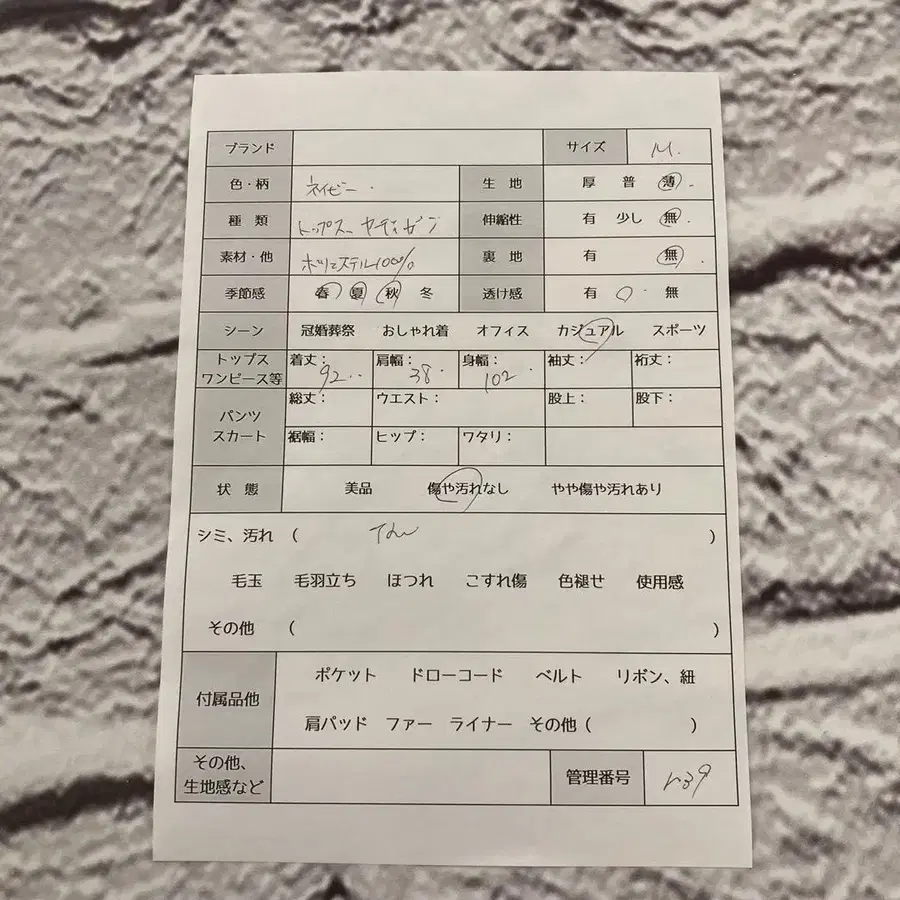 ブランド サイズ M.
色・柄 ネイビー. 生地 厚 普 薄.
種類 トップス カーディガン 伸縮性 有 少し 無.
素材・他 ポリエステル100% 裏地 有 無.
季節感 春 夏 秋 冬 透け感 有 無
シーン 冠婚葬祭 おしゃれ着 オフィス カジュアル スポーツ
トップス ワンピース等 着丈: 92 肩幅: 38 身幅: 102 袖丈: 裄丈:
パンツ スカート 総丈: ウエスト: 股上: 股下:
裾幅: ヒップ: ワタリ:
状態 美品 傷や汚れなし やや傷や汚れあり
シミ、汚れ ( )
毛玉 毛羽立ち ほつれ こすれ傷 色褪せ 使用感
その他 ( )
付属品他 ポケット ドローコード ベルト リボン、紐
肩パッド ファー ライナー その他 ( )
その他、生地感など 管理番号